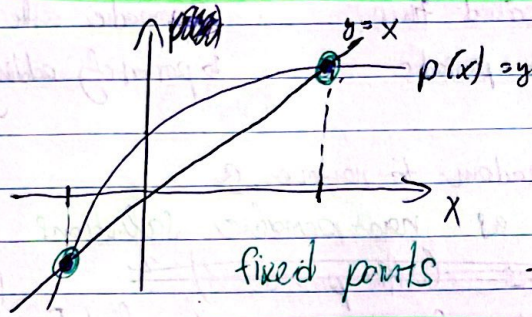 y = x
p(x) = y
x
fixed points